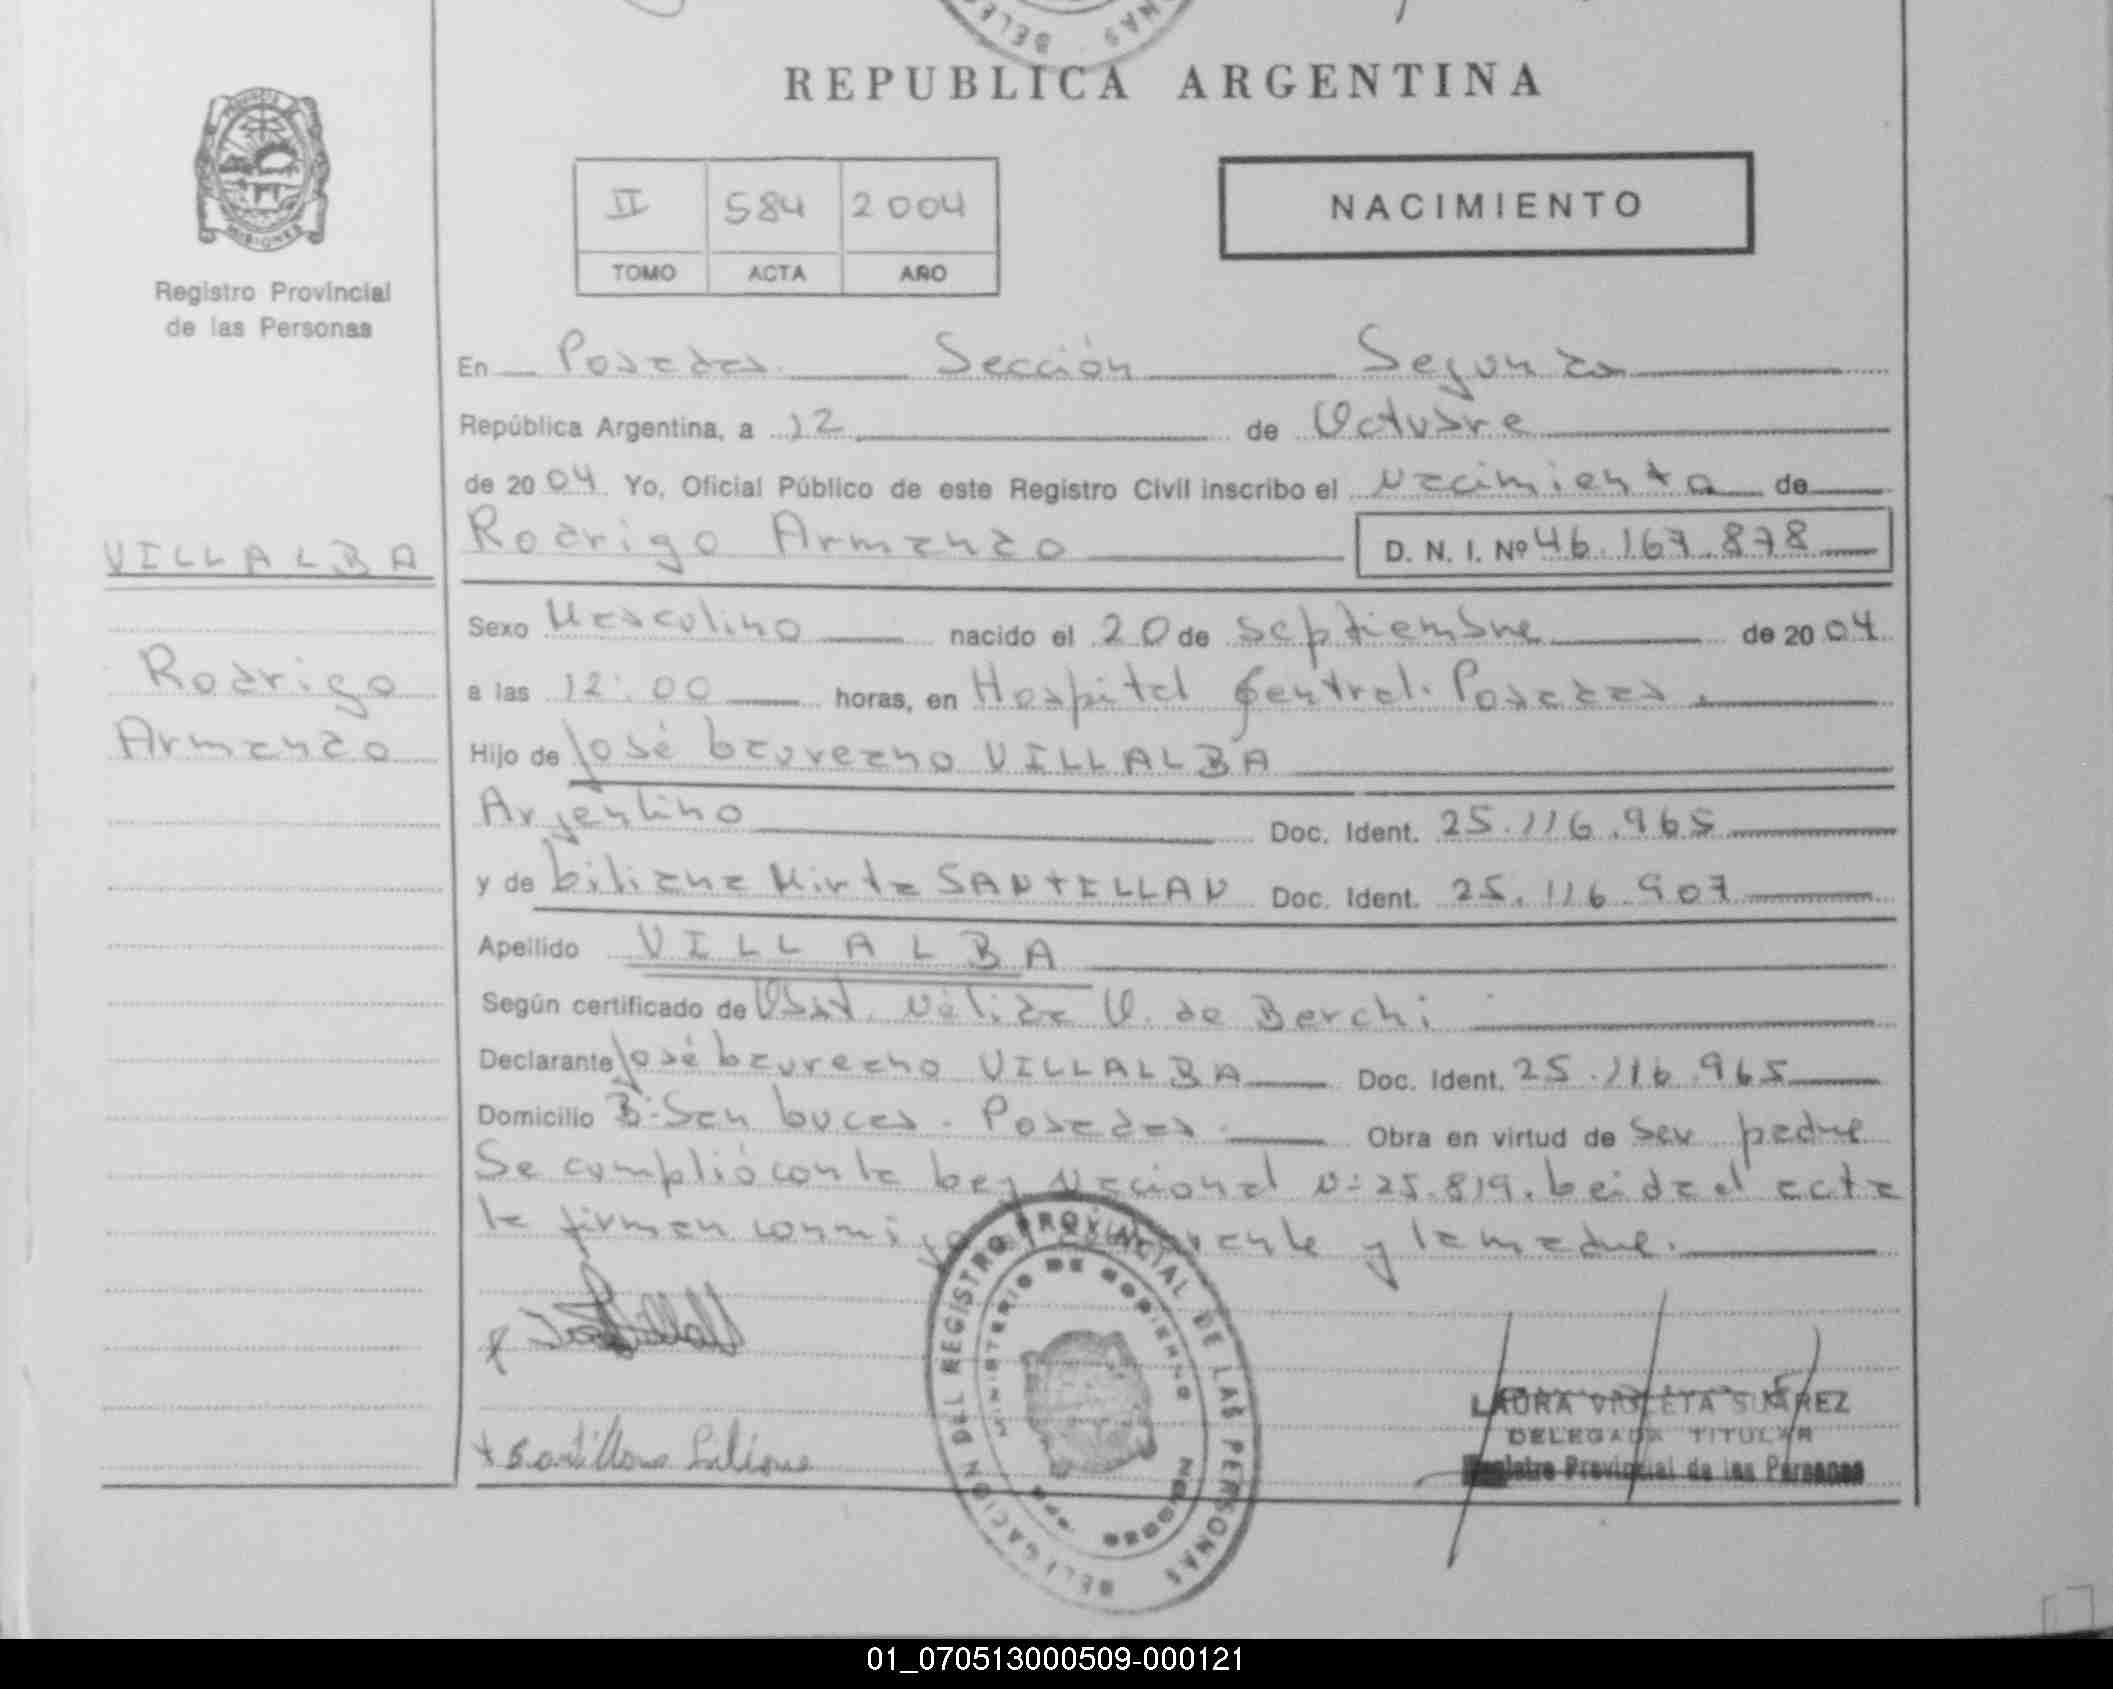 REPUBLICA ARGENTINA
MISIONES
Registro Provincial
de las Personas
II 584 2004
TOMO ACTA AÑO
NACIMIENTO
En Posadas Sección Segunda
República Argentina, a 12 de Octubre
de 2004 Yo, Oficial Público de este Registro Civil inscribo el Nacimiento de
VILLALBA
Rodrigo Armando D. N. I. Nº 46.167.878
Sexo Masculino nacido el 20 de Septiembre de 2004
Rodrigo
Armando
a las 12:00 horas, en Hospital Central. Posadas.
Hijo de José Laureano VILLALBA
Argentino Doc. Ident. 25.116.965
y de Liliana Mirta SANTELLAN Doc. Ident. 25.116.907
Apellido VILLALBA
Según certificado de Obst. Nélida V. de Berchi
Declarante José Laureano VILLALBA Doc. Ident. 25.116.965
Domicilio Bº San Lucas. Posadas. Obra en virtud de ser padre
Se cumplió con la Ley Nacional Nº 25.819. Leida el acta
la firman conmigo y la madre.
DELEGACION DEL REGISTRO PROVINCIAL DE LAS PERSONAS
MINISTERIO DE GOBIERNO
Santillana Liliana
LAURA VIOLETA SUÁREZ
DELEGADA TITULAR
Registro Provincial de las Personas
01_070513000509-000121